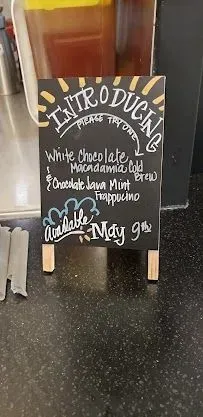 INTRODUCING
PLEASE TRY ONE
White Chocolate
Macadamia Cold
Brew
& Chocolate Java Mint
Frappucino
Available May 9th